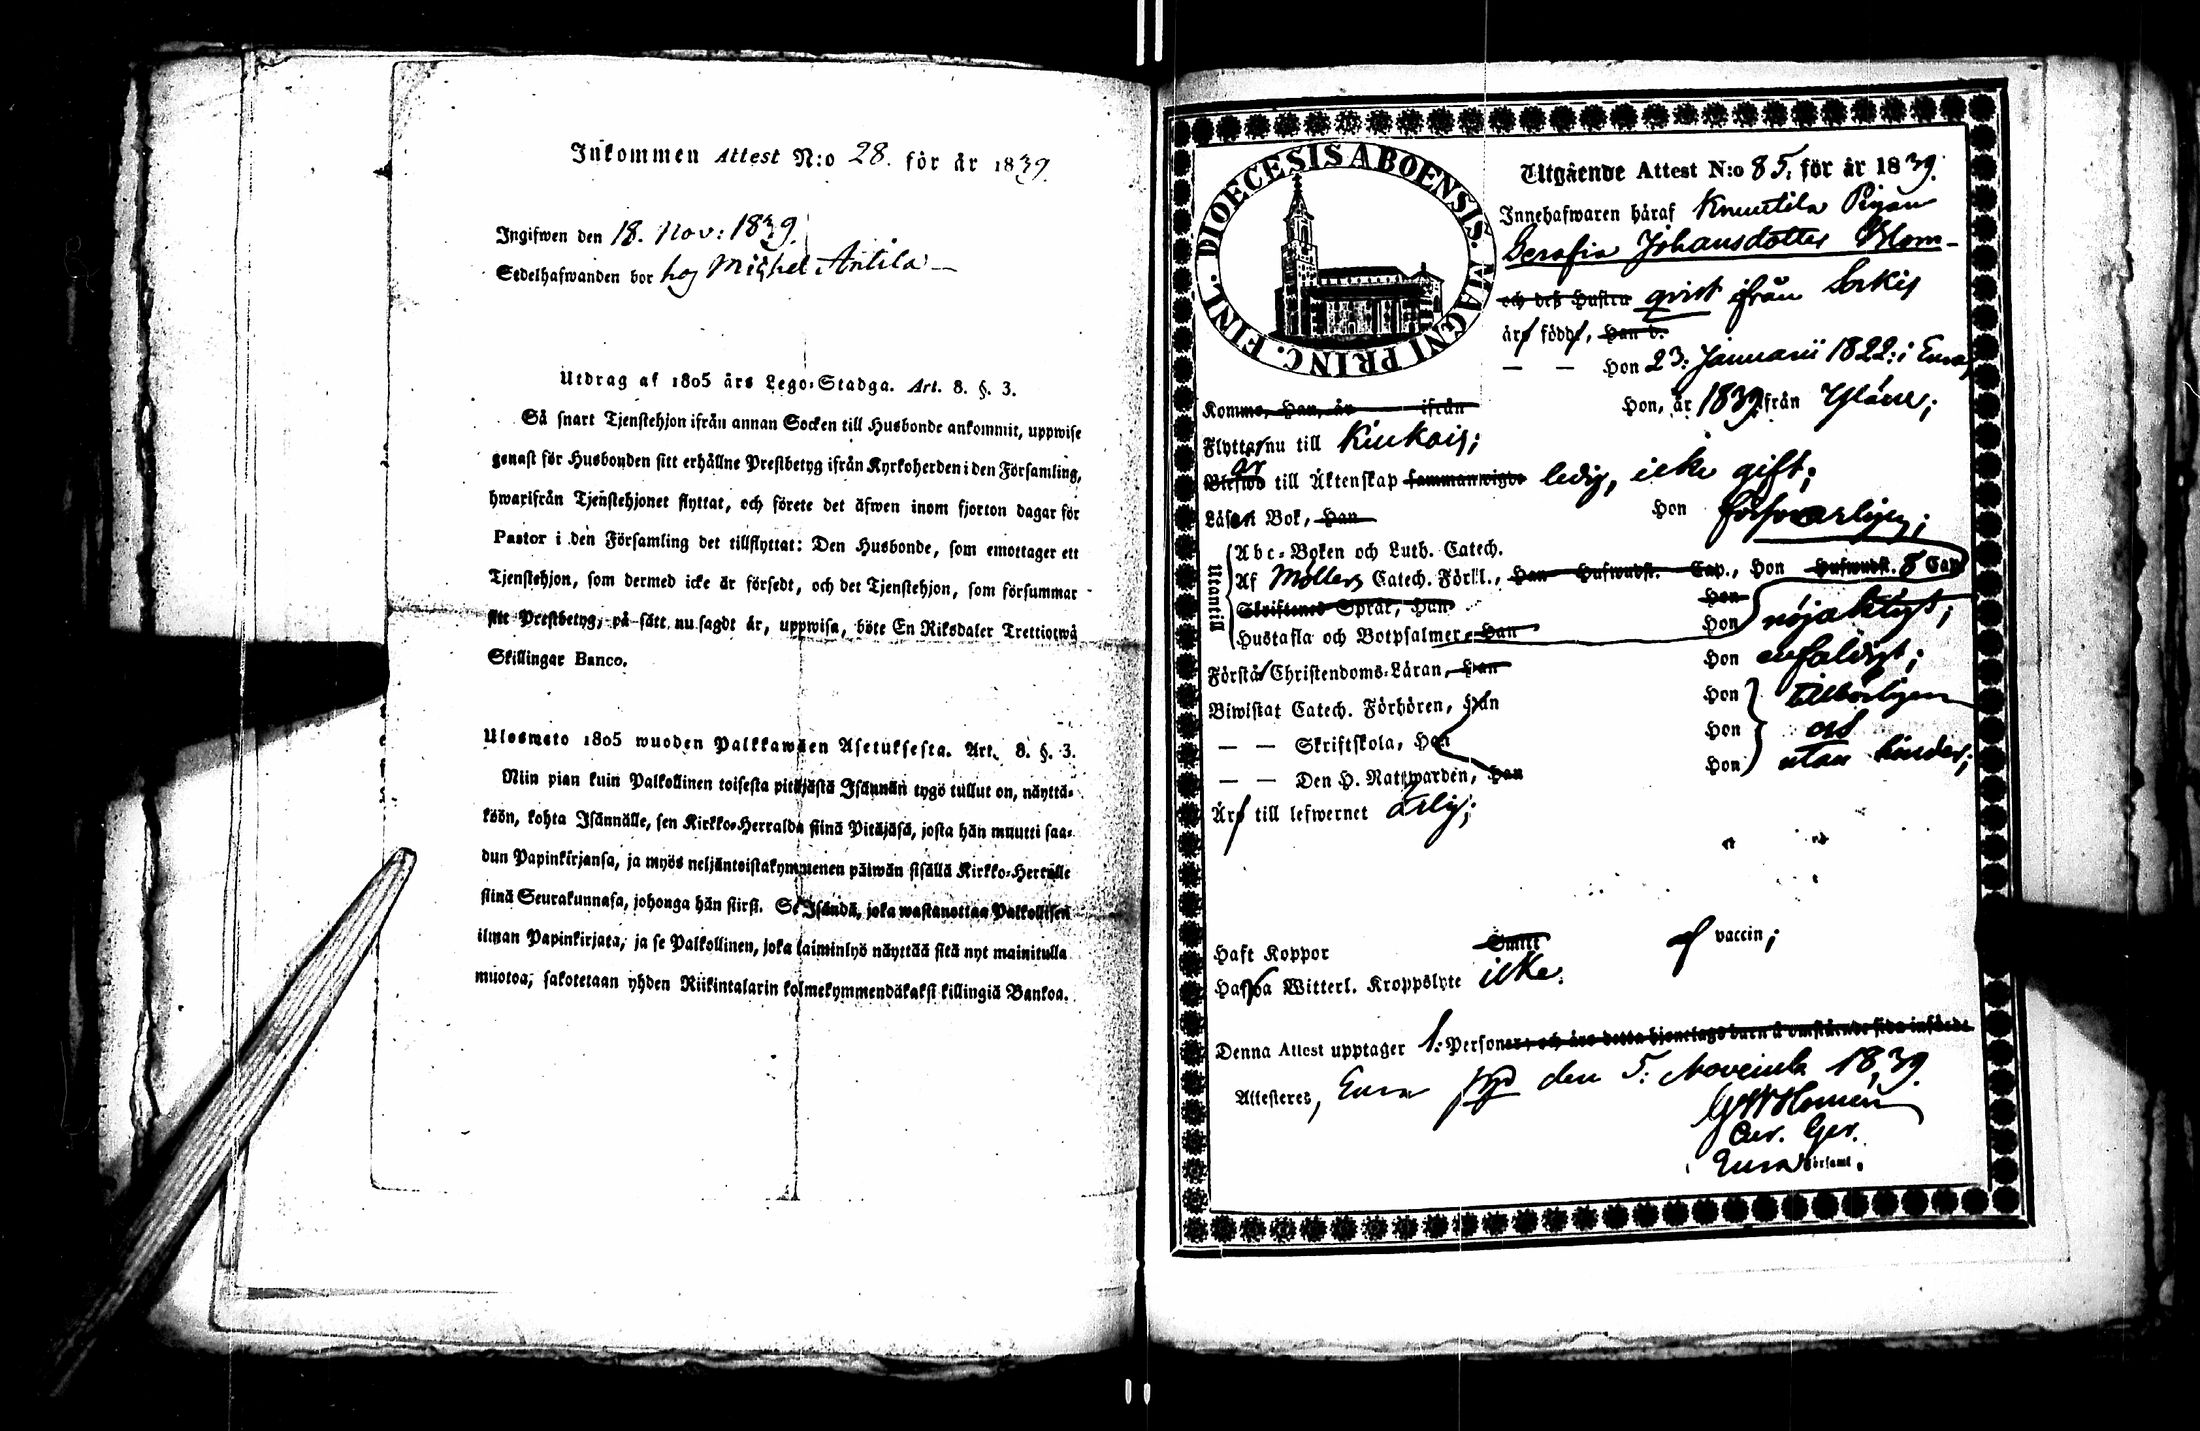 Inkommen Attest N:o 28. för år 1839.
Ingifwen den 18. Nov: 1839.
Sedelhafwanden bor hos Michel Antila
Utdrag af 1805 års Lego-Stadga. Art. 8. §. 3.
Så snart Tjenstehjon ifrån annan Socken till Husbonde ankommit, uppwise
genast för Husbonden sitt erhållne Prestbetyg ifrån Kyrkoherden i den Församling,
hwarifrån Tjenstehjonet flyttat, och förete det äfwen inom fjorton dagar för
Pastor i den Församling det tillflyttat: Den Husbonde, som emottager ett
Tjenstehjon, som dermed icke är försedt, och det Tjenstehjon, som försummar
sitt Prestbetyg, på sätt nu sagdt är, uppwisa, böte En Riksdaler Trettiotwå
Skillingar Banco.
Ulosmeto 1805 wuoden Palkkawäen Asetuksesta. Art. 8. §. 3.
Niin pian kuin Palkollinen toisesta pitäjästä Isännän tygö tullut on, näyttä-
köön, kohta Isännälle, sen Kirkko-Herralda siinä Pitäjäsä, josta hän muutti saa-
dun Papinkirjansa, ja myös neljäntoistakymmenen päiwän sisällä Kirkko-Herralle
siinä Seurakunnasa, johonga hän siirsi. Se Isändä, joka wastanottaa Palkollisen
ilman Papinkirjata, ja se Palkollinen, joka laiminlyö näyttää sitä nyt mainitulla
muotoa, sakotetaan yhden Riikintalarin kolmekymmendäkaksi killingiä Bankoa.
DIOECESIS ABOENSIS. MAGNI PRINC. FINL.
Utgående Attest N:o 85. för år 1839.
Innehafwaren häraf Knuutila Pigan
Serafia Johansdotter Blom-
och deß Hustru qvist ifrån Sorkis
äro född, Han d.
— — Hon 23: Januarii 1822: i Eura,
Komme, Han, år ifrån Hon, år 1839 ifrån Yläne;
Flyttar nu till Kiukais;
är till Äktenskap sammanwigde ledig, icke gift;
Läsa i Bok, Han Hon försvarligen;
Utantill
Abc-Boken och Luth. Catech.
Af Möllers Catech. Förkl., Han Hufwudst. Cap., Hon Hufwudst. 8 Cap
Skriftenes Språk, Han Hon
Hustafla och Botpsalmer, Han Hon nöjaktigt;
Förstå Christendoms-Läran, Han Hon enfaldigt;
Biwistat Catech. Förhören, Han Hon tillbörligen
— — Skriftskola, Han Hon och
— — Den H. Nattwarden, Han Hon utan hinder;
Är till lefwernet ärlig;
Haft Koppor af vaccin;
Hafwa Witterl. Kroppslyte icke.
Denna Attest upptager 1: Personer, och äro detta hjonelags barn å omstående sida införde
Attesteres, Eura den 5: Novemb 1839.
Eura Församl.